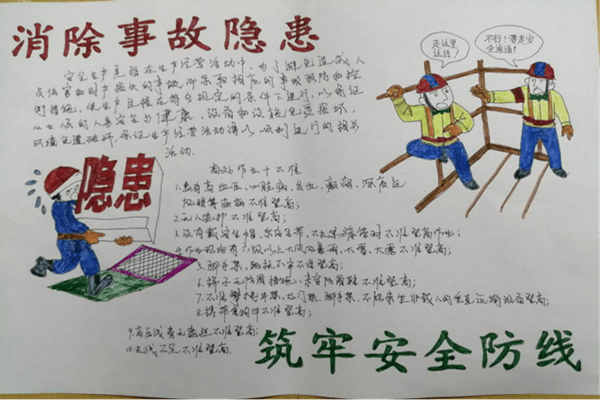 消除事故隐患
走这里近话!
不行!要走安全通道!
安全生产是指在生产经营活动中,为了避免造成人
员伤害和财产损失的事故而采取相应的事故预防和控
制措施,使生产过程在符合规定的条件下进行,以保证
从业人员的人身安全与健康,设备和设施免受损坏,
环境免遭破坏,保证生产经营活动得以顺利进行的相关
活动。
隐患
高处作业十不准
1.患有高血压、心脏病、贫血、癫痫、深度近
视眼等疾病不准登高;
2.无人监护不准登高;
3.没有戴安全帽、系安全带、不扎紧裤管时不准登高作业;
4.作业现场有六级以上大风及暴雨、大雪、大雾不准登高;
5.脚手架、跳板不牢不准登高;
6.梯子无防滑措施、未穿防滑鞋不准登高;
7.不准攀爬井架、龙门架、脚手架、不能乘坐非载人的垂直运输设备登高;
8.携带笨重物件不准登高;
9.高压线旁无遮拦不准登高;
10.光线不足不准登高。
筑牢安全防线